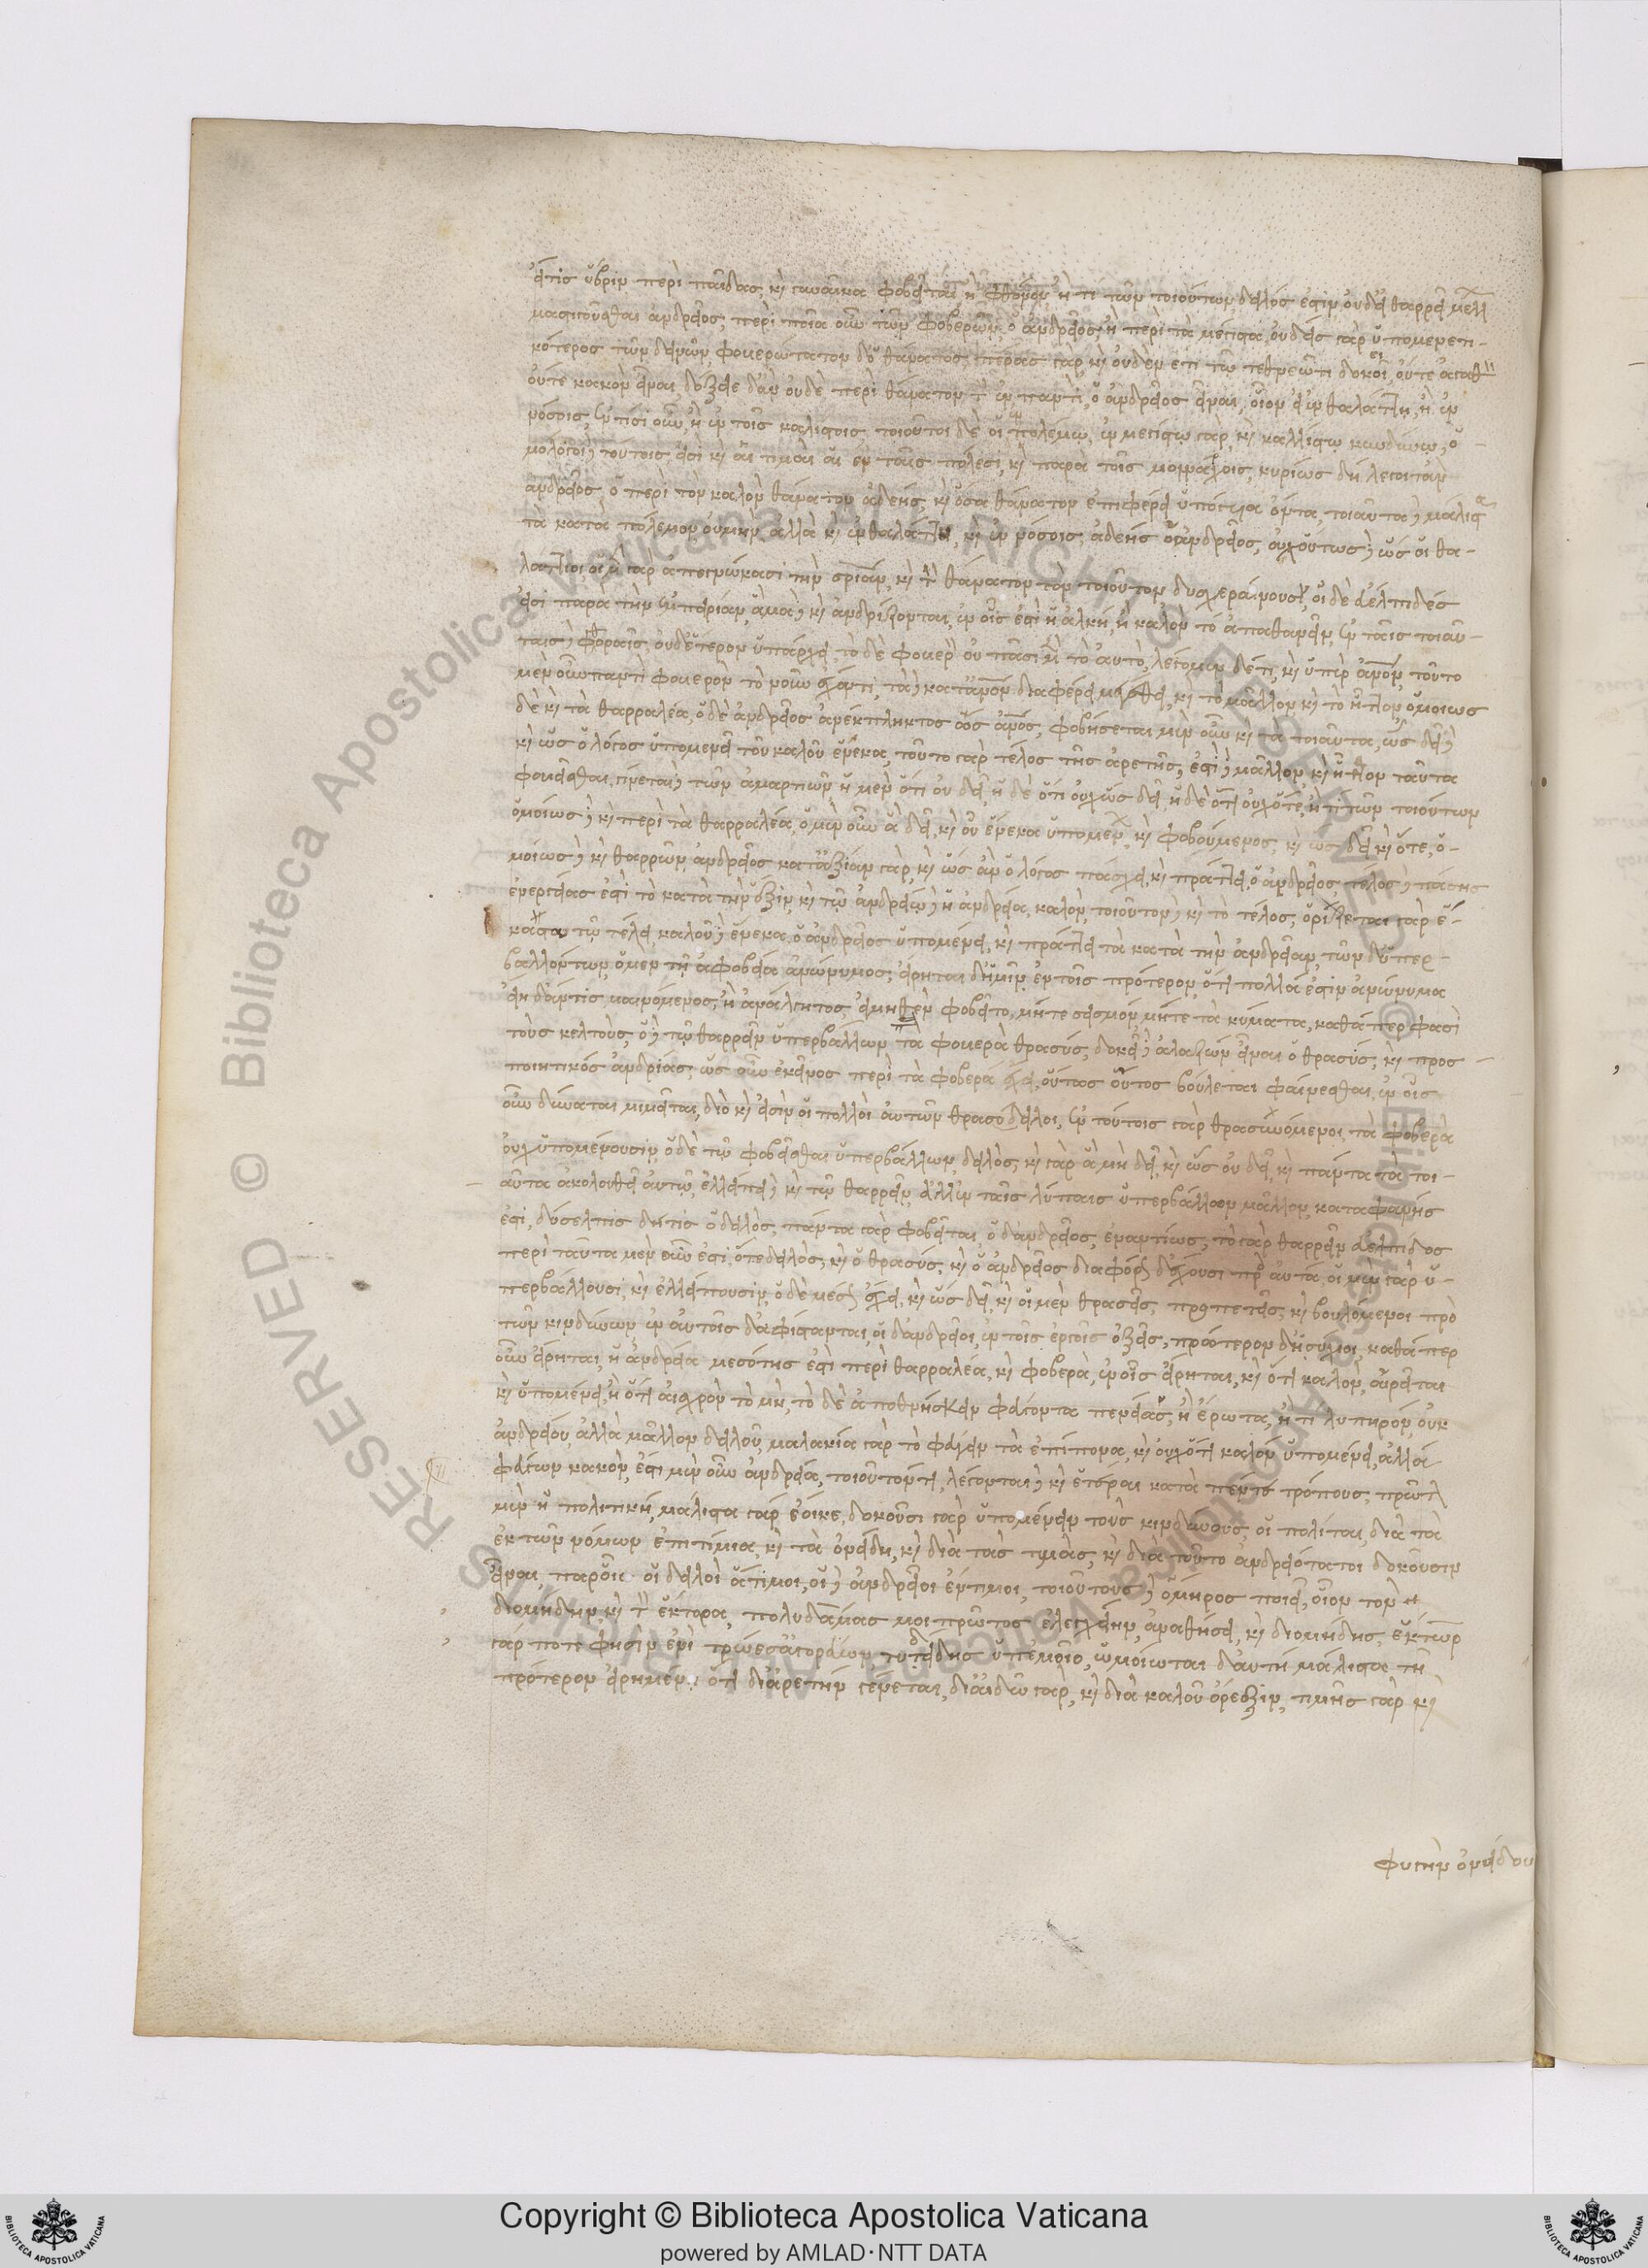 εἴτις ὕβριν περὶ παῖδας, κὶ γυναῖκα φοβεῖται ἢ φθόνον, ἢ τι τῶν τοιούτων, δειλός ἐστιν οὐδ' εἰ θαρρεῖ μέλλ
μαστιγοῦσθαι ἀνδρεῖος, περὶ ποῖα οὖν τῶν φοβερῶν, ὁ ἀνδρεῖος; ἢ περὶ τὰ μέγιστα, οὐδεὶς γὰρ ὑπομενετι-
κότερος τῶν δεινῶν, φοβερώτατον δ' ὁ θάνατος, πέρας γὰρ κὶ οὐδὲν ἔτι τῷ τεθνεῶτι δοκεῖ, οὔτε ἀγαθ
οὔτε κακὸν εἶναι, δόξειε δ' ἂν οὐδὲ περὶ θάνατον τ ἐν παντὶ, ὁ ἀνδρεῖος εἶναι, οἷον εἰ ἐν θαλάττῃ, ἢ ἐν
νόσοις, ἐν τίσι οὖν, ἢ ἐν τοῖς καλίστοις τοιοῦτοι δὲ οἱ ἐν πολέμῳ, ἐν μεγίστῳ γὰρ, κὶ καλλίστῳ κινδύνῳ, ὁ
μόλογοι) τούτοις εἰσὶ κὶ αἱ τιμαὶ αἱ ἐν ταῖς πόλεσι, κὶ παρὰ τοῖς μονάρχοις, κυρίως δὴ λέγοιτ' ἂν
ἀνδρεῖος, ὁ περὶ τὸν καλὸν θάνατον ἀδεής, κὶ ὅσα θάνατον ἐπιφέρει ὑπόγυια ὄντα, τοιαῦτα) μάλιστα
τὰ κατὰ πόλεμον, οὐμὴν ἀλλὰ κὶ ἐν θαλάττῃ, κὶ ἐν νόσοις, ἀδεής ὁ ἀνδρεῖος, οὐχ' οὕτως) ὡς οἱ θα-
λάττιοι, οἱ μ γὰρ ἀπεγνώκασι τὴν σωτηρίαν, κὶ τ θάνατον τὸν τοιοῦτον, δυσχεραίνουσιν, οἱ δὲ εὐέλπιδές
εἰσι παρὰ τὴν ἐμπειρίαν, ἅμα) κὶ ἀνδρίζονται, ἐν οἷς ἐστὶ ἡ ἀλκή, ἢ καλὸν τὸ ἀποθανεῖν, ἐν ταῖς τοιαύ-
ταις) φθοραῖς, οὐδ' ἕτερον ὑπάρχει, τὸ δὲ φοβερὸν οὐ πᾶσι μ τὸ αὐτὸ, λέγομεν δέ τι, κὶ ὑπὲρ ἄνον, τοῦτο
μὲν οὖν παντὶ φοβερὸν τὸ νοῦν ἔχοντι, τὰ) κατ' ἄνον διαφέρει μεγέθει, κὶ τὸ μᾶλλον κὶ τὸ ἧττον, ὁμοίως
δὲ κὶ τὰ θαρραλέα, ὁ δὲ ἀνδρεῖος ἀνέκπληκτος ὡς ἄνος, φοβήσεται μὲν οὖν κὶ τὰ τοιαῦτα, ὡς δεῖ)
κὶ ὡς ὁ λόγος ὑπομενεῖ τοῦ καλοῦ ἕνεκα, τοῦτο γὰρ τέλος τῆς ἀρετῆς, ἐστὶ) μᾶλλον κὶ ἧττον ταῦτα
φοβεῖσθαι, γίνεται) τῶν ἁμαρτιῶν ἡ μὲν ὅτι οὐ δεῖ, ἡ δὲ ὅτι οὐχ' ὡς δεῖ, ἡ δὲ ὅτι οὐχ' ὅτε, ἤ τι τῶν τοιούτων
ὁμοίως) κὶ περὶ τὰ θαρραλέα, ὁ μὲν οὖν ἃ δεῖ, κὶ οὗ ἕνεκα ὑπομέν, κὶ φοβούμενος, κὶ ὡς δεῖ κὶ ὅτε, ὁ-
μοίως) κὶ θαρρῶν, ἀνδρεῖος κατ' ἀξίαν γὰρ, κὶ ὡς ἂν ὁ λόγος πάσχει, κὶ πράττει, ὁ ἀνδρεῖος, τέλος) πάσης
ἐνεργείας ἐστὶ τὸ κατὰ τὴν ἕξιν, κὶ τῷ ἀνδρείῳ) ἡ ἀνδρεία, καλὸν, τοιοῦτον) κὶ τὸ τέλος, ὁρίζεται γὰρ ἕ-
καστον τῷ τέλει, καλοῦ) ἕνεκα, ὁ ἀνδρεῖος ὑπομένει, κὶ πράττει τὰ κατὰ τὴν ἀνδρείαν, τῶν δ' ὑπερ-
βαλλόντων, ὁ μὲν τῇ ἀφοβείᾳ ἀνώνυμος, εἴρηται δ' ἡμῖν ἐν τοῖς πρότερον, ὅτι πολλά ἐστιν ἀνώνυμα
εἴη δ' ἄν τις μαινόμενος, ἢ ἀνάλγητος, εἰ μηθὲν φοβεῖτο, μήτε σεισμὸν, μήτε τὰ κύματα, καθάπερ φασὶ
τοὺς κελτοὺς, ὁ) τῷ θαρρεῖν ὑπερβάλλων τὰ φοβερὰ θρασύς, δοκεῖ) ἀλαζὼν εἶναι ὁ θρασύς, κὶ προς
ποιητικὸς ἀνδρίας, ὡς οὖν ἐκεῖνος περὶ τὰ φοβερὰ ἔχει, οὕτως οὗτος βούλεται φαίνεσθαι, ἐν οἷς
οὖν δύναται, μιμεῖται, διὸ κὶ εἰσὶν οἱ πολλοὶ αὐτῶν θρασύδειλοι, ἐν τούτοις γὰρ θρασυνόμενοι, τὰ φοβερὰ
οὐχ' ὑπομένουσιν, ὁ δὲ τῷ φοβεῖσθαι ὑπερβάλλων, δειλὸς, κὶ γὰρ ἃ μὴ δεῖ, κὶ ὡς οὐ δεῖ, κὶ πάντα τὰ τοι-
αῦτα ἀκολουθεῖ αὐτῷ, ἐλλείπει) κὶ τῷ θαρρεῖν, ἀλλ' ἐν ταῖς λύπαις ὑπερβάλλων μᾶλλον, καταφανής
ἐστι, δύσελπις δή τις ὁ δειλὸς, πάντα γὰρ φοβεῖται, ὁ δ' ἀνδρεῖος, ἐναντίως, τὸ γὰρ θαρρεῖν εὐέλπιδος
περὶ ταῦτα μὲν οὖν ἐστι, ὅ τε δειλὸς, κὶ ὁ θρασύς, κὶ ὁ ἀνδρεῖος διαφόρ δ' ἔχουσι πρ αὐτά, οἱ μὲν γὰρ ὑ-
περβάλλουσι, κὶ ἐλλείπουσιν, ὁ δὲ μέσ ἔχει, κὶ ὡς δεῖ, κὶ οἱ μὲν θρασεῖς, προπετεῖς, κὶ βουλόμενοι πρὸ
τῶν κινδύνων, ἐν αὐτοῖς δ' ἀφίστανται, οἱ δ' ἀνδρεῖοι, ἐν τοῖς ἔργοις ὀξεῖς, πρότερον δ' ἡσύχιοι, καθάπερ
οὖν εἴρηται, ἡ ἀνδρεία μεσότης ἐστὶ περὶ θαρραλέα, κὶ φοβερὰ, ἐν οἷς εἴρηται, κὶ ὅτι καλὸν, αἱρεῖται
κὶ ὑπομένει, ἢ ὅτι αἰσχρὸν τὸ μὴ, τὸ δὲ ἀποθνήσκειν φεύγοντα πενίας, ἢ ἔρωτα, ἤ τι λυπηρὸν, οὐκ
ἀνδρείου, ἀλλὰ μᾶλλον δειλοῦ, μαλακία γὰρ τὸ φεύγειν τὰ ἐπίπονα, κὶ οὐχ' ὅτι καλὸν ὑπομένει, ἀλλὰ
φεύγων κακὸν, ἔστι μὲν οὖν ἀνδρεία, τοιοῦτόν τι, λέγονται) κὶ ἕτεραι κατὰ πέντε τρόπους, πρῶτ
μὲν ἡ πολιτική, μάλιστα γὰρ ἔοικε, δοκοῦσι γὰρ ὑπομένειν τοὺς κινδύνους οἱ πολῖται, διὰ τὰ
ἐκ τῶν νόμων ἐπιτίμια, κὶ τὰ ὀνείδη, κὶ διὰ τὰς τιμάς, κὶ διὰ τοῦτο ἀνδρειότατοι δοκοῦσιν
εἶναι, παρ' οἷς οἱ δειλοὶ ἄτιμοι, οἱ) ἀνδρεῖοι ἔντιμοι, τοιούτους) ὅμηρος ποιεῖ, οἷον τὸν
διομήδην, κὶ τ ἕκτορα, πολυδάμας μοι πρῶτος ἐλεγχείην, ἀναθήσει, κὶ διομήδης, ἕκτωρ
γάρ ποτε φήσει ἐνὶ τρώεσσ' ἀγορεύων, τυδείδης ὑπ' ἐμοῖο, ὡμοίωται δ' αὕτη μάλιστα τῇ
πρότερον εἰρημέν, ὅτι δι' ἀρετὴν γίνεται, δι' αἰδῶ γὰρ, κὶ διὰ καλοῦ ὄρεξιν, τιμῆς γὰρ κὶ
φυγὴν ὀνείδου
Copyright © Biblioteca Apostolica Vaticana
powered by AMLAD·NTT DATA